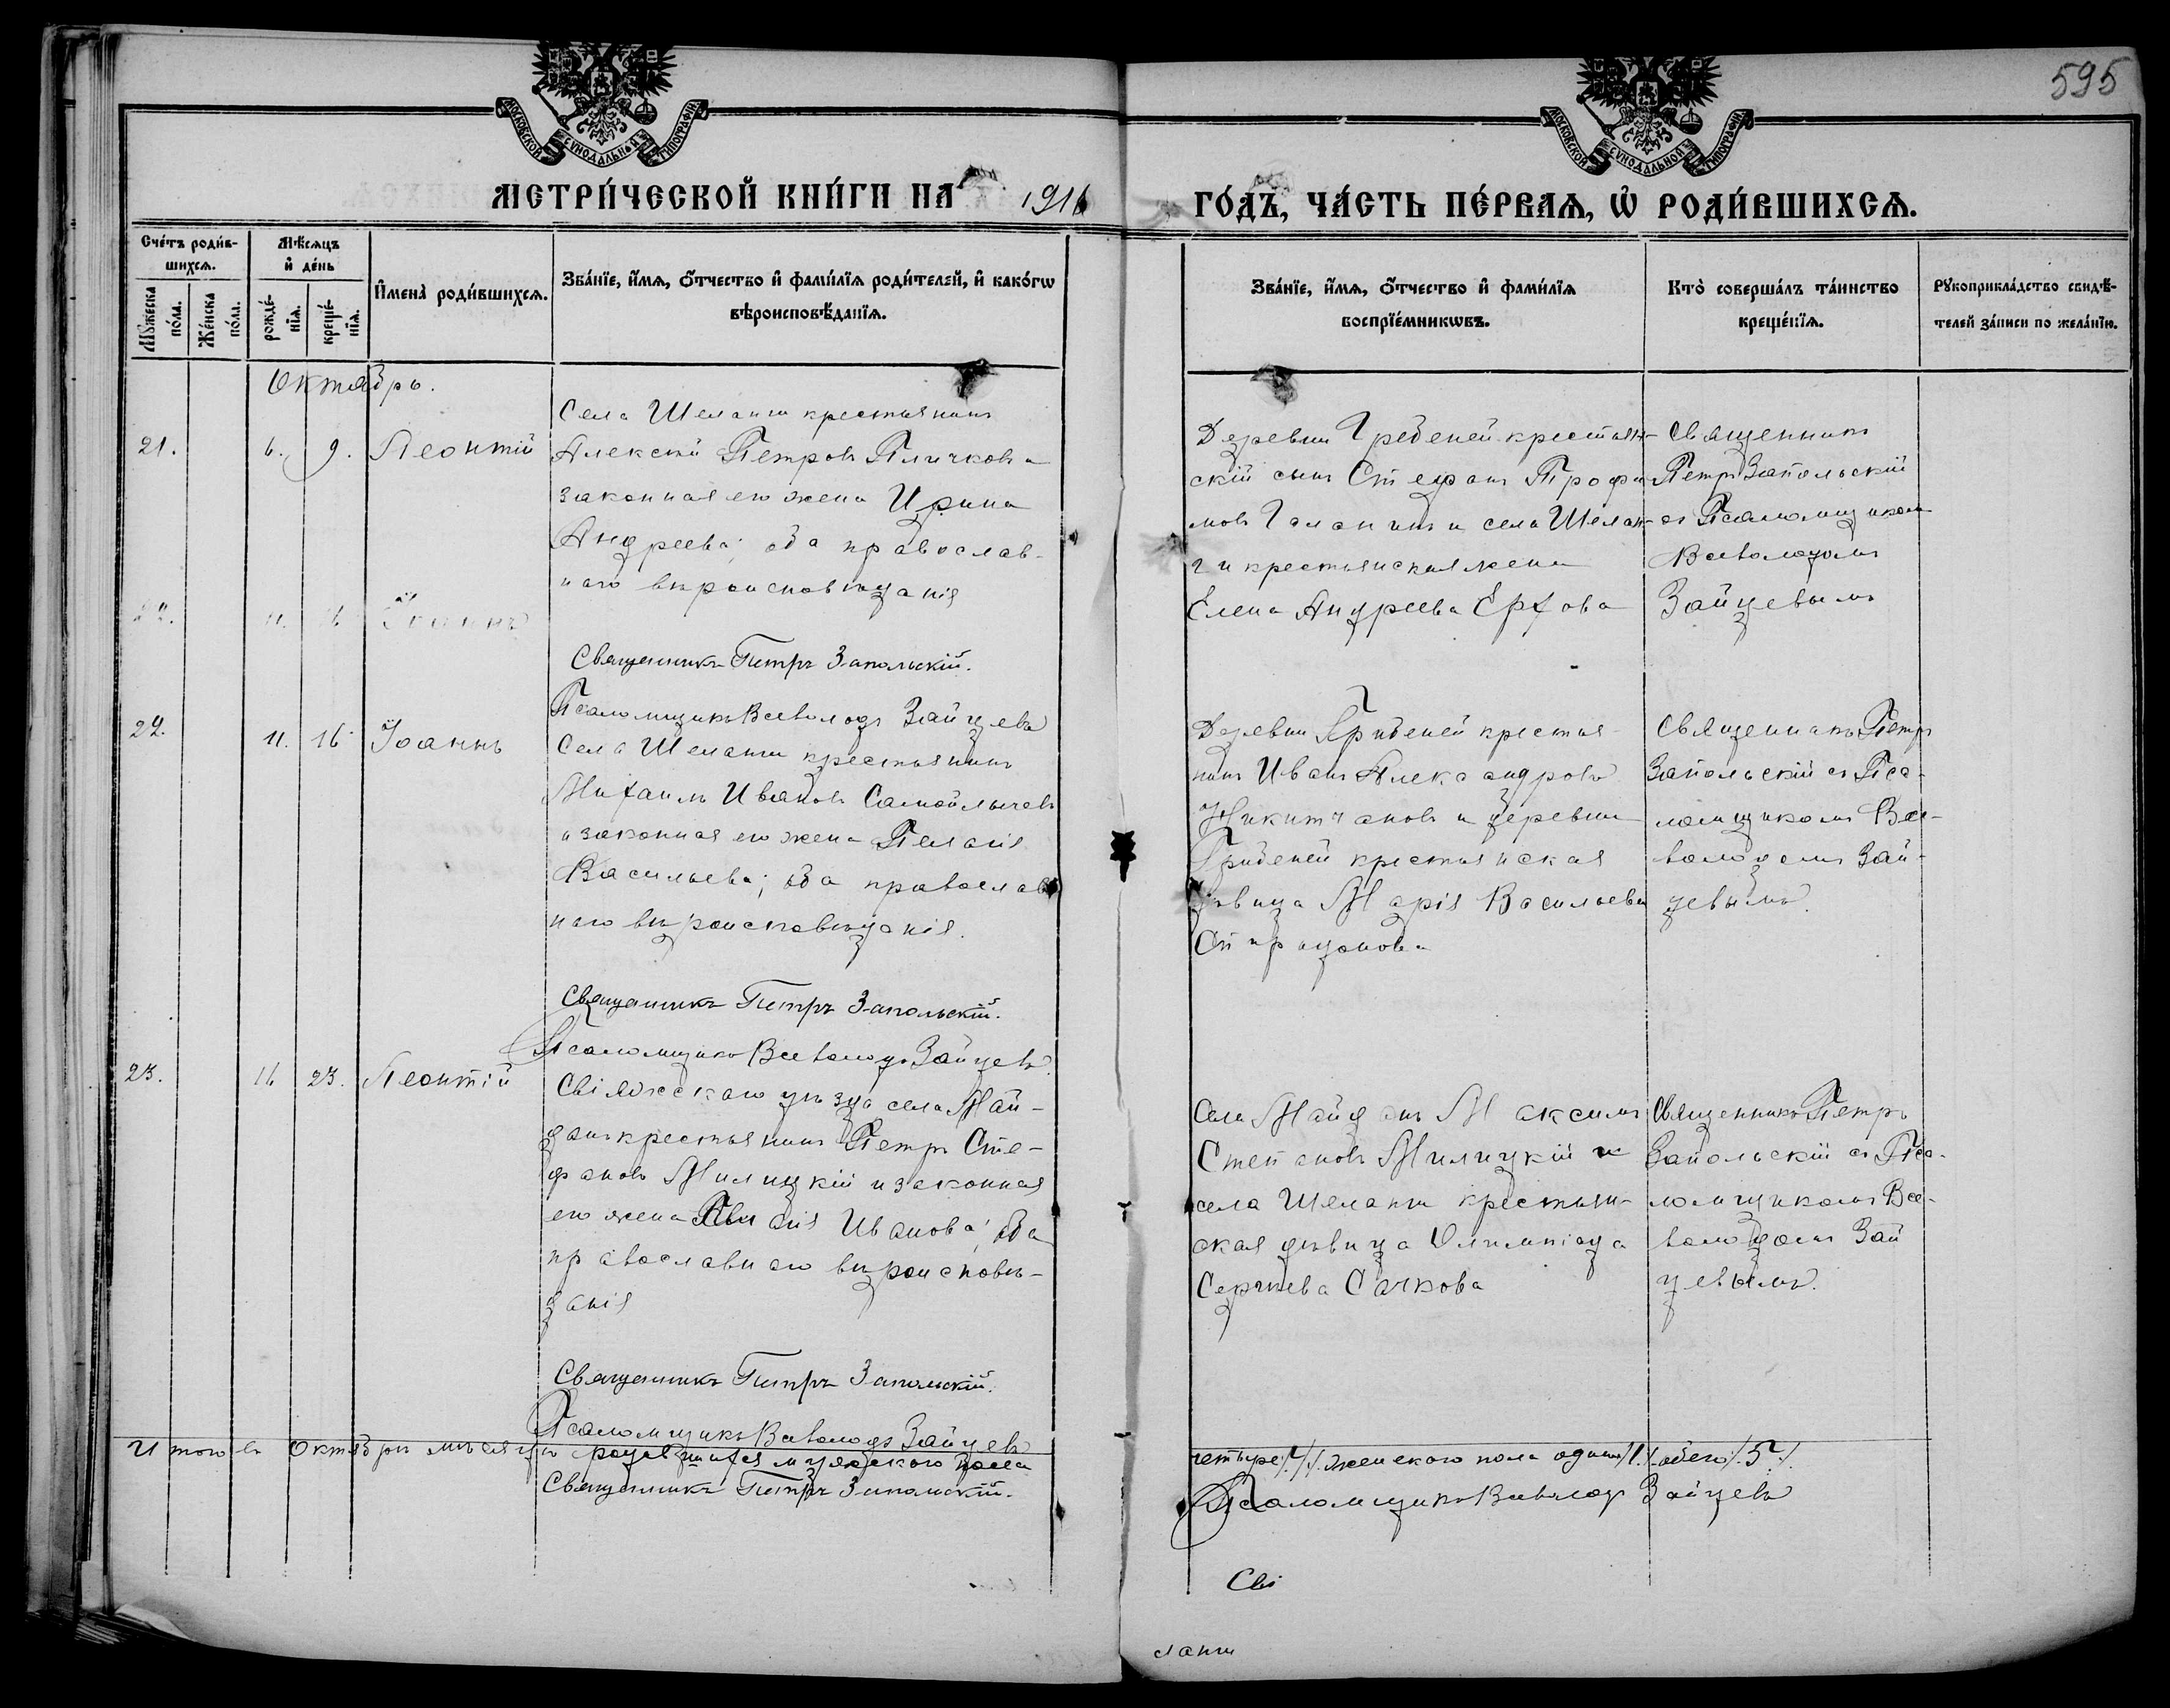 595
МОСКОВСКОЙ СѴНОДАЛЬНОЙ ТИПОГРАФІИ
МОСКОВСКОЙ СѴНОДАЛЬНОЙ ТИПОГРАФІИ
МЕТРИ́ЧЕСКОЙ КНИ́ГИ НА 1916 ГО́ДЪ, ЧА́СТЬ ПЕ́РВАѦ, Ѡ҆ РОДИ́ВШИХСѦ.
Сче́тъ роди́в-
шихсѧ.
Мѹжеска по́ла.
Же́нска по́ла.
Мѣ́сѧцъ
и҆ де́нь
рожде́-
нїѧ.
креще́-
нїѧ.
И҆мена̀ роди́вшихсѧ.
Зва́нїе, и҆́мѧ, ѻ҆́тчество и҆ фами́лїѧ роди́телей, и҆ како́гѡ
вѣроисповѣ́данїѧ.
Зва́нїе, и҆́мѧ, ѻ҆́тчество и҆ фами́лїѧ
воспрїе́мникѡвъ.
Кто̀ соверша́лъ та́инство
креще́нїѧ.
Рѹкоприкла́дство свидѣ́-
телей за́писи по жела́нїю.
Октябрь.
21. 6. 9. Леонтій
Села Шеланги крестьянинъ
Алексѣй Петровъ Пличковъ и
законная его жена Ирина
Андреева; оба православ-
наго вѣроисповѣданія
Деревни Гребеней крестьян-
скій сынъ Стефанъ Трофи
мовъ Галанинъ и села Шелан-
ги крестьянская жена
Елена Андреева Ерхова
Священникъ
Петръ Запольскій
съ Псаломщикомъ
Всеволодомъ
Зайцевымъ
22. 11. 16 Іоаннъ
Священникъ Петръ Запольскій.
Псаломщикъ Всеволодъ Зайцевъ
22. 11. 16 Іоаннъ
Села Шеланги крестьянинъ
Михаилъ Ивановъ Самойлычевъ
и законная его жена Пелагія
Васильева; оба православ
наго вѣроисповѣданія.
Деревни Гребеней крестья-
нинъ Иванъ Александровъ
Никитчановъ и деревни
Гребеней крестьянская
дѣвица Марія Васильева
Священникъ Петръ
Запольскій съ Пса-
ломщикомъ Все-
володомъ Зай-
цевымъ.
Священникъ Петръ Запольскій.
Псаломщикъ Всеволодъ Зайцевъ
23. 16 23. Леонтій
Свіяжскаго уѣзда села Май-
данъ крестьянинъ Петръ Сте-
фановъ Милицкій и законная
его жена Иванова; оба
православнаго вѣроисповѣ-
данія
Села Майданъ Максимъ
Степановъ Милицкій и
села Шеланги крестьян-
ская дѣвица Олимпіада
Сергѣева Сачкова
Священникъ Петръ
Запольскій съ Пса-
ломщикомъ Все-
володомъ Зай
цевымъ.
Священникъ Петръ Запольскій.
Псаломщикъ Всеволодъ Зайцевъ
Итого въ Октябрѣ мѣсяцѣ родившихся мужского пола четыре /4/. женскаго пола одинъ /1/. обего /5/.
Священникъ Петръ Запольскій.
Псаломщикъ Всеволодъ Зайцевъ
Сві
ланги